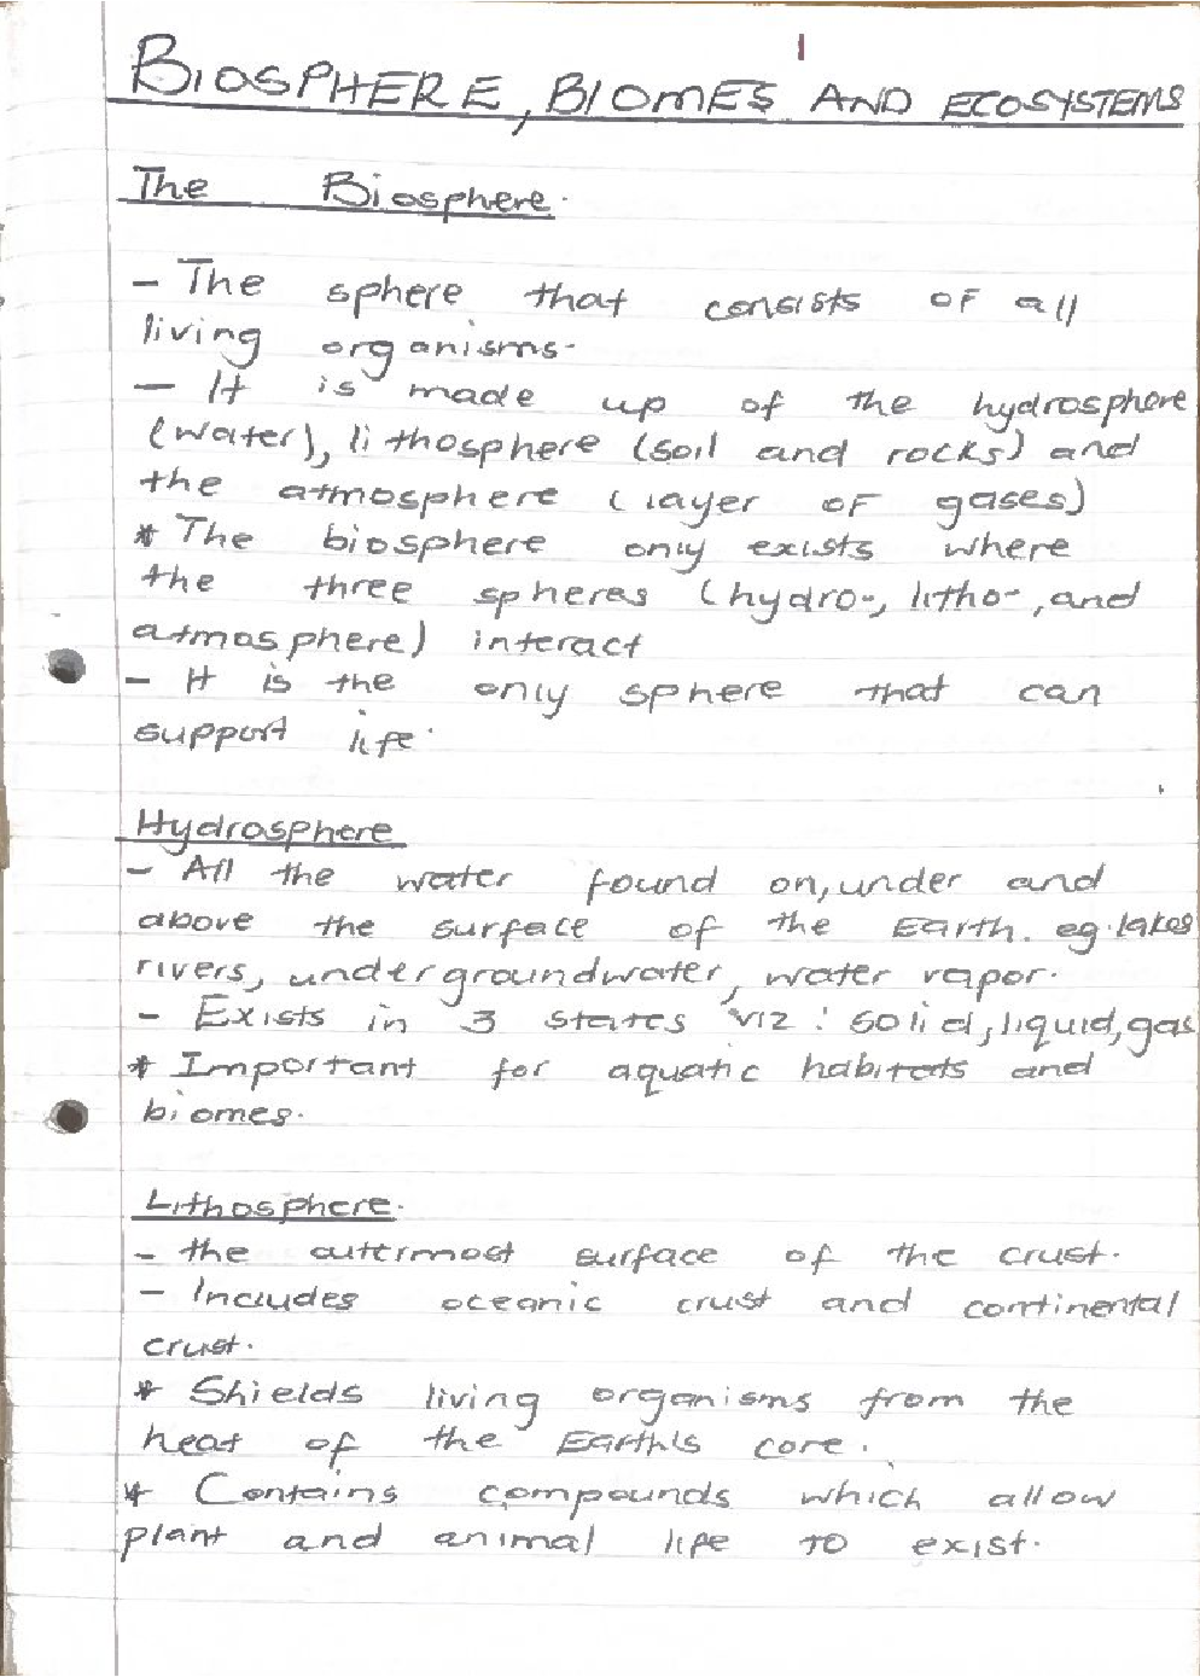 1
BIOSPHERE, BIOMES AND ECOSYSTEMS
The Biosphere.
- The sphere that consists of all
living organisms.
- It is made up of the hydrosphere
(water), lithosphere (soil and rocks) and
the atmosphere (layer of gases)
* The biosphere only exists where
the three spheres (hydro-, litho-, and
atmosphere) interact
- It is the only sphere that can
support life.
Hydrosphere
- All the water found on, under and
above the surface of the Earth. eg. lakes
rivers, undergroundwater, water vapor.
- Exists in 3 states viz: solid, liquid, gas
* Important for aquatic habitats and
biomes.
Lithosphere.
- the outtermost surface of the crust.
- Includes oceanic crust and continental
crust.
* Shields living organisms from the
heat of the Earth's core.
* Contains compounds which allow
plant and animal life to exist.